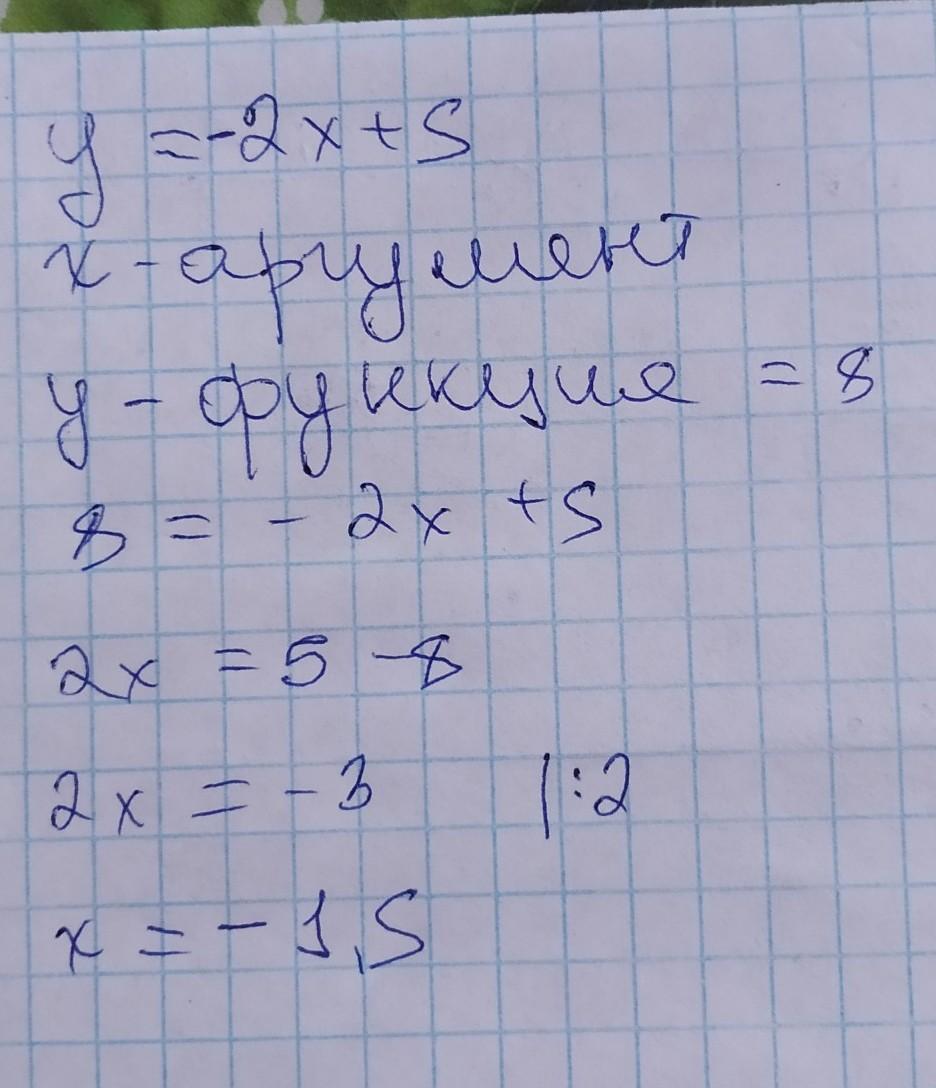 y = -2x + 5
x - аргумент
y - функция = 8
8 = - 2x + 5
2x = 5 - 8
2x = - 3 |:2
x = - 1,5